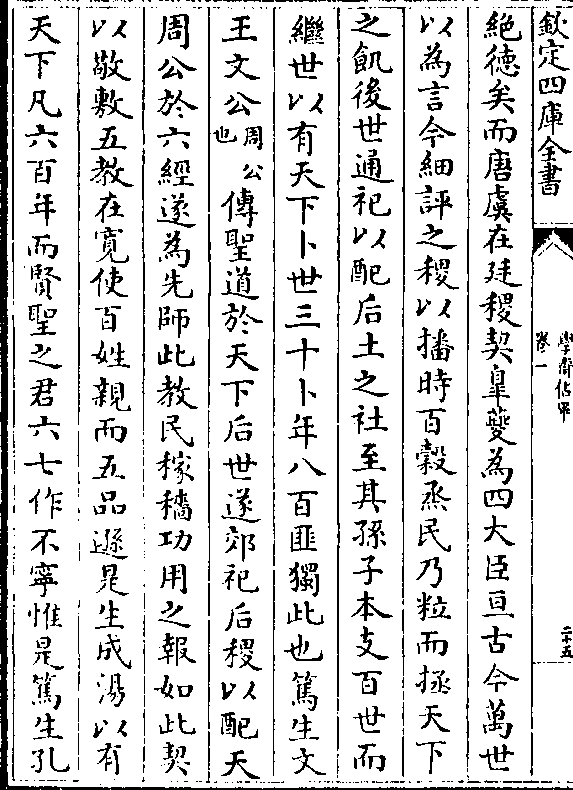 欽定四庫全書
學齋佔畢
卷一
二十五
絕德矣而唐虞在廷稷契臯夔為四大臣亘古今萬世
以為言今細評之稷以播時百穀烝民乃粒而拯天下
之飢後世通祀以配后土之社至其孫子本支百世而
繼世以有天下卜世三十卜年八百匪獨此也篤生文
王文公周公也傳聖道於天下后世遂郊祀后稷以配天
周公於六經遂為先師此教民稼穡功用之報如此契
以敬敷五教在寛使百姓親而五品遜是生成湯以有
天下凡六百年而賢聖之君六七作不寧惟是篤生孔